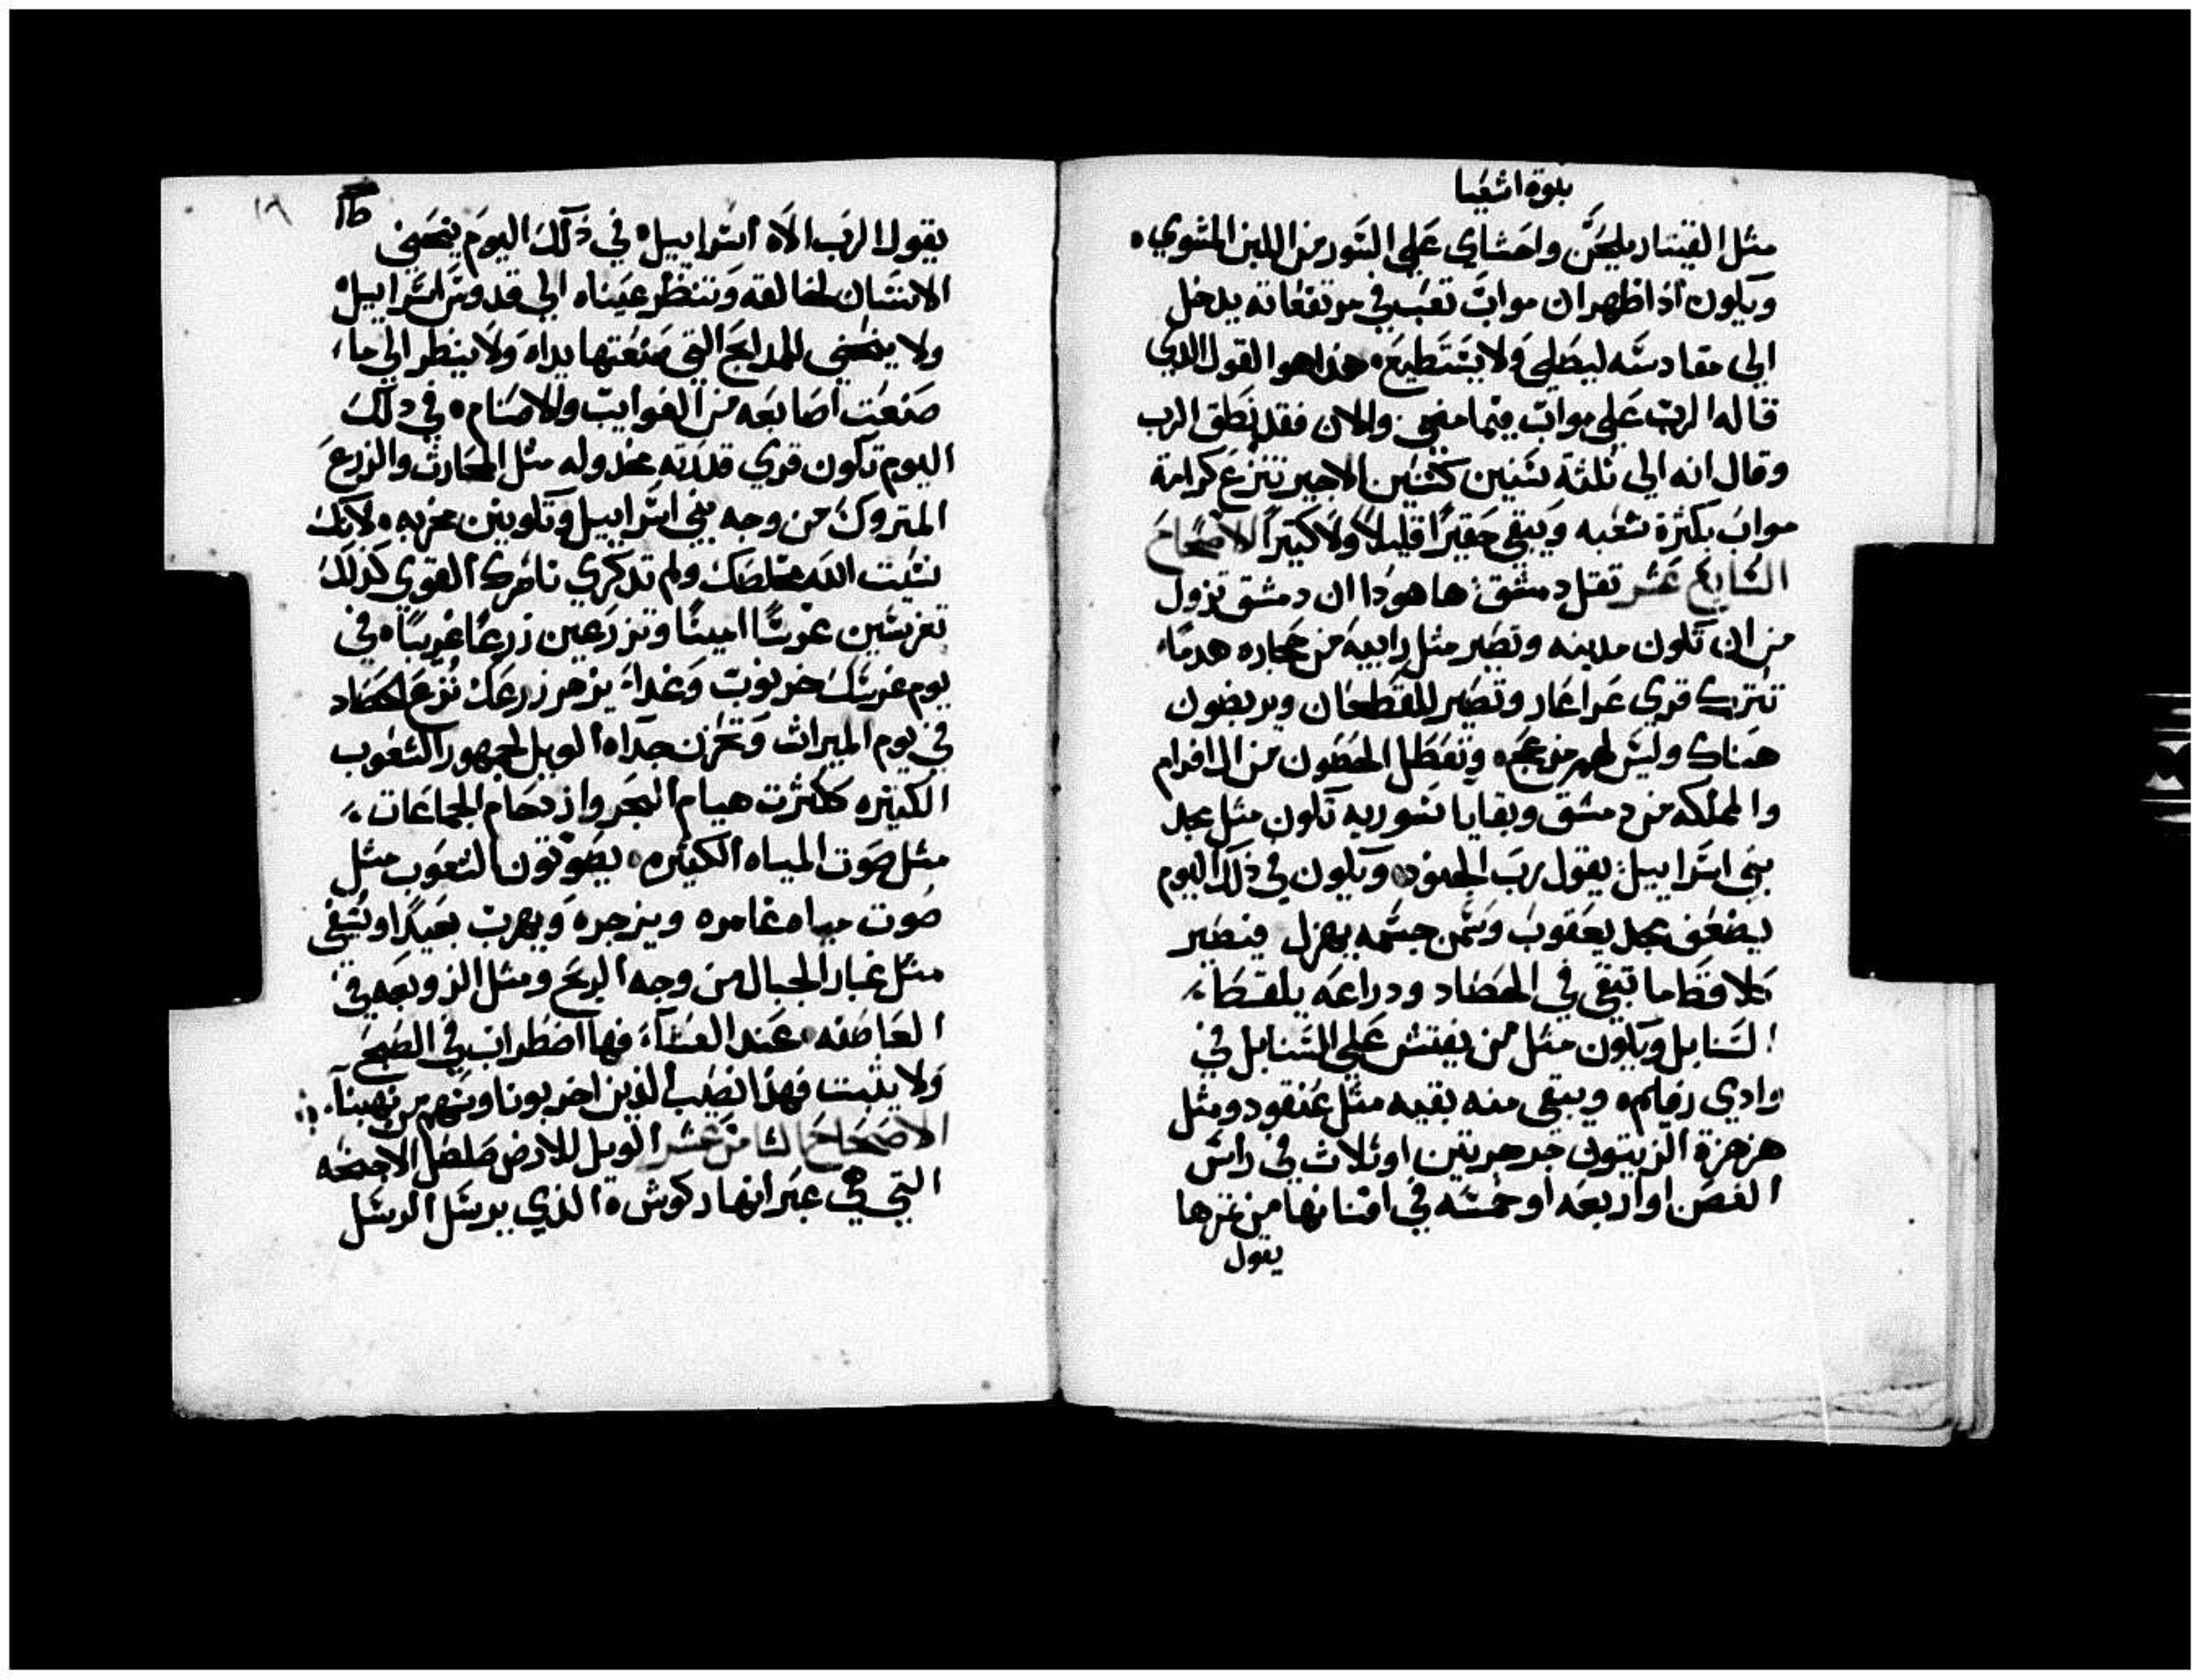 بنوة اشعيا
مثل القيتار يلحن واحشاي علي السور من اللبن المشوي
ويكون اذا ظهر ان مواب تعب في مرتفعاته يدخل
الي مقادسه ليصلي ولا يستطيع هذا هو القول الدي
قاله الرب علي مواب فيما مضي والان فقد نطق الرب
وقال انه الي ثلثة سنين كسنين الاجير تنزع كرامة
مواب بكثرة شعبه ويبقي حقيرًا قليلاً ولا كبيرًا الاصحاح
السابع عشر ثقل دمشق ها هودا ان دمشق تزول
من ان تكون مدينه وتصير مثل رابيه من حجاره هدما
تترك قري عراعار وتصير للقطعان ويربضون
هناك وليس لهم مزعج وتعطل الحصون من افرام
والمملكه من دمشق وبقايا سوريه تكون مثل مجد
بني اسراييل يقول رب الجنود ويكون في ذلك اليوم
يضعف مجد يعقوب وسمن جسمه يهزل فيصير
كلاقط ما تبقي في الحصاد ودراعه يلقط
السنابل ويكون مثل من يفتش علي السنابل في
وادي رفايم ويبقي منه بقيه مثل عنقود ومثل
هزهزة الزيتون حرحرتين او ثلاث في راس
الغصن او اربعه او خمسه في افنانها من ثمرها
يقول
١٨ ١٦
يقول الرب الاه اسراييل في ذلك اليوم ينحني
الانسان لخالقه وتنظر عيناه الي قدوس اسراييل
ولا ينحني للمدابح التي صنعتها يداه ولا ينظر الي ما
صنعت اصابعه من الغوايب والاصنام في دلك
اليوم تكون قري قدرته مخدوله مثل المحارث والزرع
المتروك من وجه بني اسراييل وتكونين مخربه لانك
نسيت الله مخلصك ولم تدكري ناصرك القوي كذلك
تغرسين غرسًا امينًا وتزرعين زرعًا غريبًا في
يوم غرسك خرنوب وغداة يزهر زرعك نزع الحصاد
في يوم الميراث وتحزن جداه الويل لجمهور الشعوب
الكثيره ككثرت هيام البحر وازدحام الجماعات
مثل صوت المياه الكثيره يصوتون الشعوب مثل
صوت مياه غامره ويزجره ويهرب بعيدًا وتسفى
مثل غبار الجبال من وجه الريح ومثل الزوبعه في
العاصفه عند العشاء فها اضطراب في الصبح
ولا يثبت فهذا نصيب الذين اخربونا وسهم من نهبنا
الاصحاح الثامن عشر الويل للارض صلصل الاجنحه
التي في عبر انهار كوش الذي يرسل الرسل